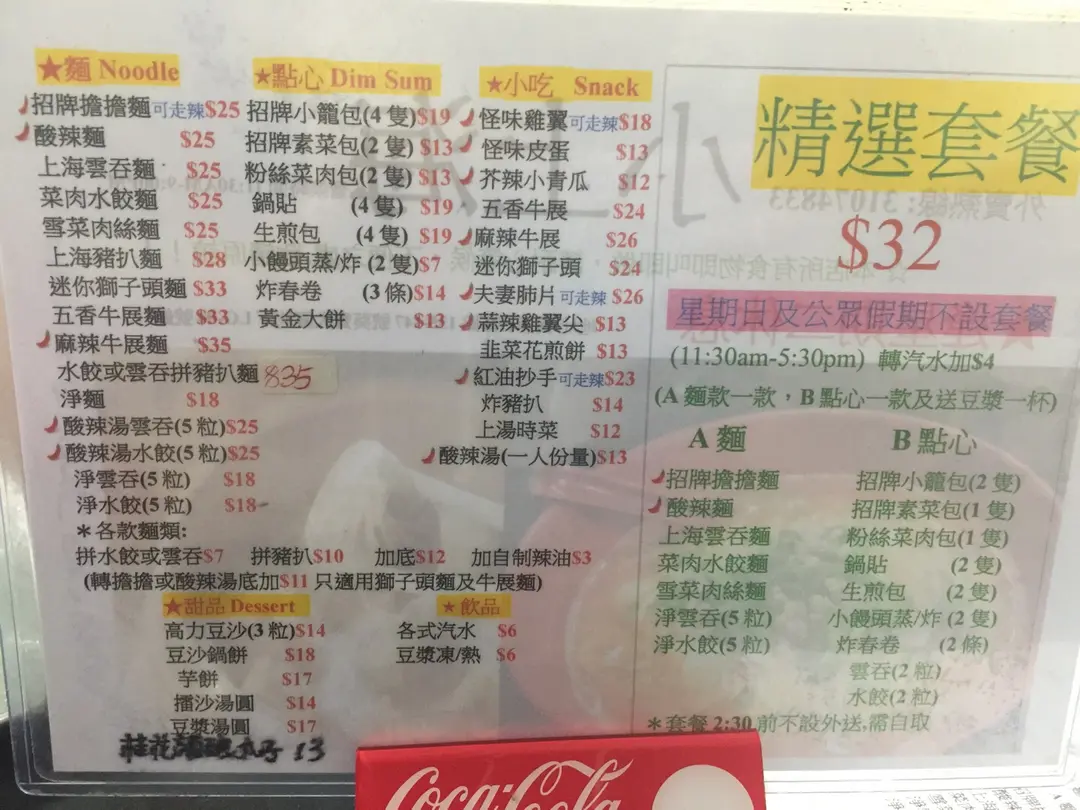 ★麵 Noodle
招牌擔擔麵可走辣$25
酸辣麵 $25
上海雲吞麵 $25
菜肉水餃麵 $25
雪菜肉絲麵 $25
上海豬扒麵 $28
迷你獅子頭麵 $33
五香牛展麵 $33
麻辣牛展麵 $35
水餃或雲吞拼豬扒麵 $35
淨麵 $18
酸辣湯雲吞(5 粒)$25
酸辣湯水餃(5 粒)$25
淨雲吞(5 粒) $18
淨水餃(5 粒) $18
＊各款麵類:
拼水餃或雲吞$7 拼豬扒$10 加底$12 加自制辣油$3
(轉擔擔或酸辣湯底加$11 只適用獅子頭麵及牛展麵)
★點心 Dim Sum
招牌小籠包(4 隻)$19
招牌素菜包(2 隻) $13
粉絲菜肉包(2 隻) $13
鍋貼 (4 隻) $19
生煎包 (4 隻) $19
小饅頭蒸/炸 (2 隻)$7
炸春卷 (3 條)$14
黃金大餅 $13
★小吃 Snack
怪味雞翼可走辣$18
怪味皮蛋 $13
芥辣小青瓜 $12
五香牛展 $24
麻辣牛展 $26
迷你獅子頭 $24
夫妻肺片可走辣 $26
蒜辣雞翼尖 $13
韭菜花煎餅 $13
紅油抄手可走辣$23
炸豬扒 $14
上湯時菜 $12
酸辣湯(一人份量)$13
★甜品 Dessert
高力豆沙(3 粒)$14
豆沙鍋餅 $18
芋餅 $17
擂沙湯圓 $14
豆漿湯圓 $17
桂花 丸子 13
★飲品
各式汽水 $6
豆漿凍/熱 $6
精選套餐
$32
星期日及公眾假期不設套餐
(11:30am-5:30pm) 轉汽水加$4
(A 麵款一款，B 點心一款及送豆漿一杯)
A 麵
招牌擔擔麵
酸辣麵
上海雲吞麵
菜肉水餃麵
雪菜肉絲麵
淨雲吞(5 粒)
淨水餃(5 粒)
B 點心
招牌小籠包(2 隻)
招牌素菜包(1 隻)
粉絲菜肉包(1 隻)
鍋貼 (2 隻)
生煎包 (2 隻)
小饅頭蒸/炸 (2 隻)
炸春卷 (2 條)
雲吞(2 粒)
水餃(2 粒)
＊套餐 2:30 前不設外送,需自取
外賣熱線: 31074833
Coca-Cola